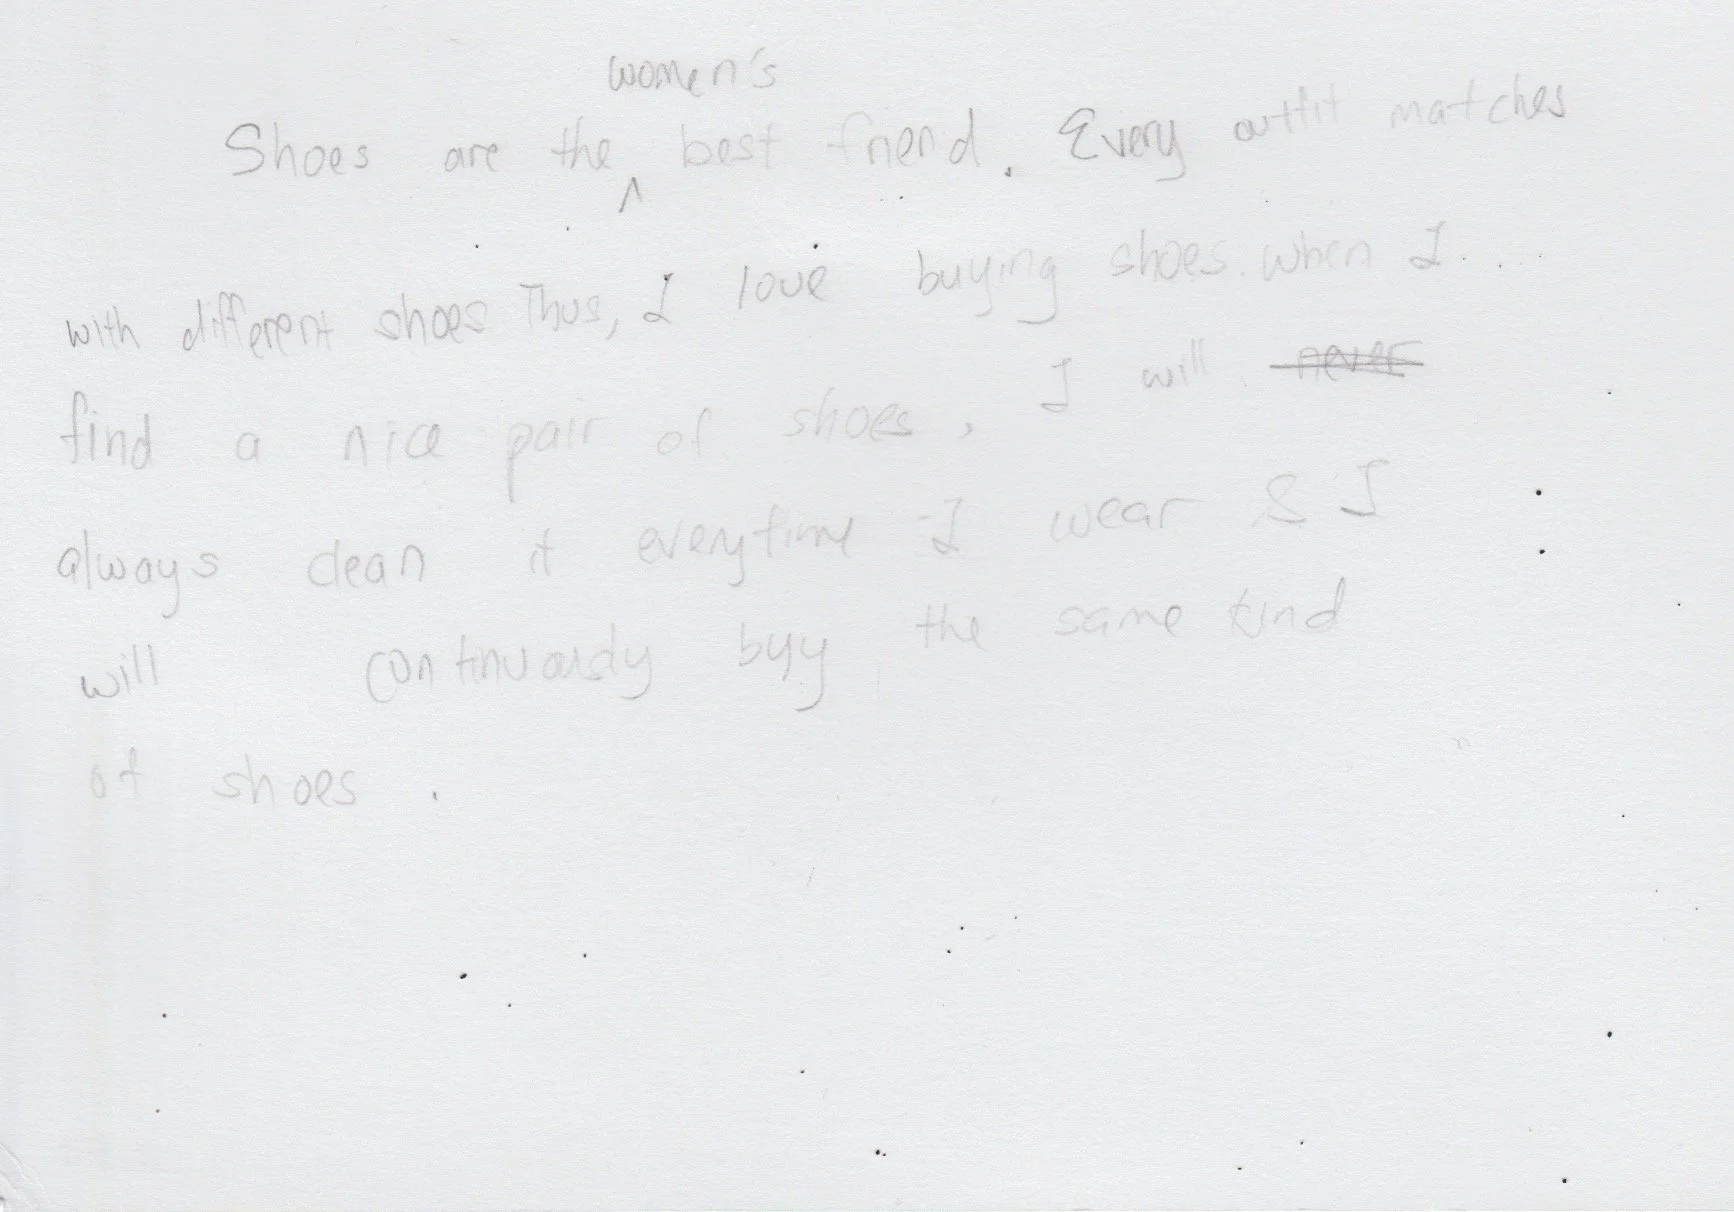 women's
Shoes are the ^ best friend. Every outfit matches
with different shoes Thus, I love buying shoes. when I
find a nice pair of shoes, I will never
always clean it everytime I wear & I
will continuously buy the same kind
of shoes.